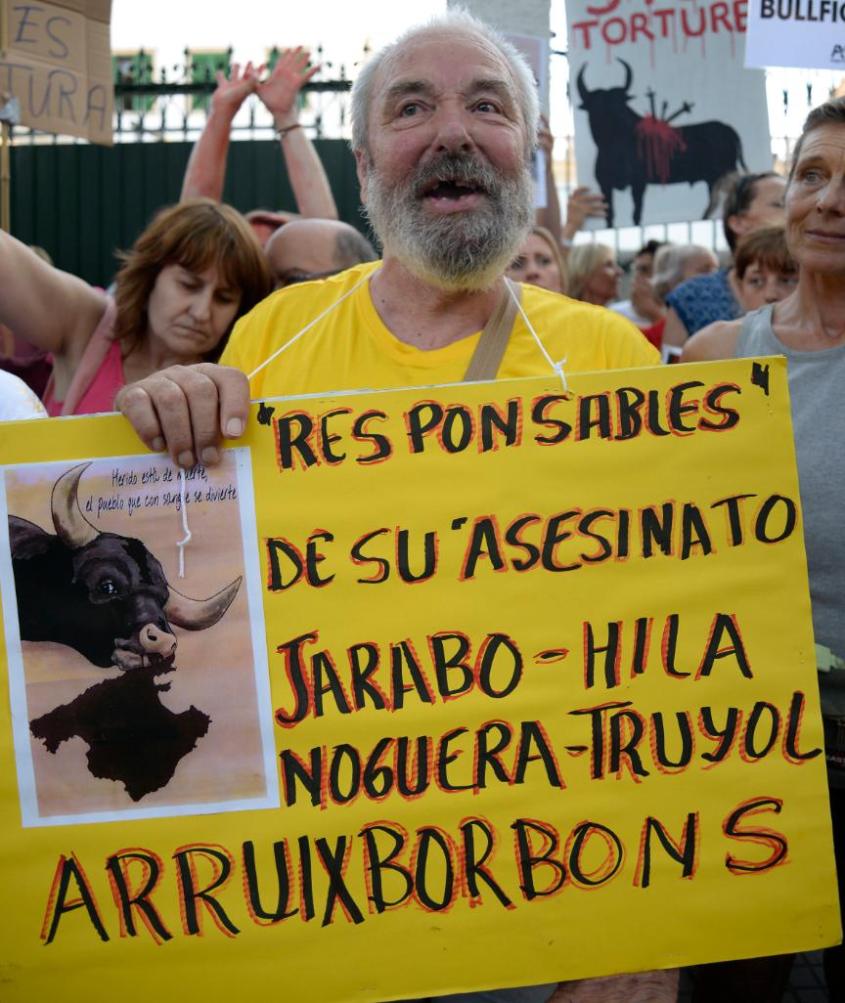 ES
TURA
TORTURE
"RESPONSABLES"
DE SU "ASESINATO
JARABO-HILA
NOGUERA-TRUYOL
ARRUIXBORBONS
Herido está de muerte,
el pueblo que con sangre se divierte